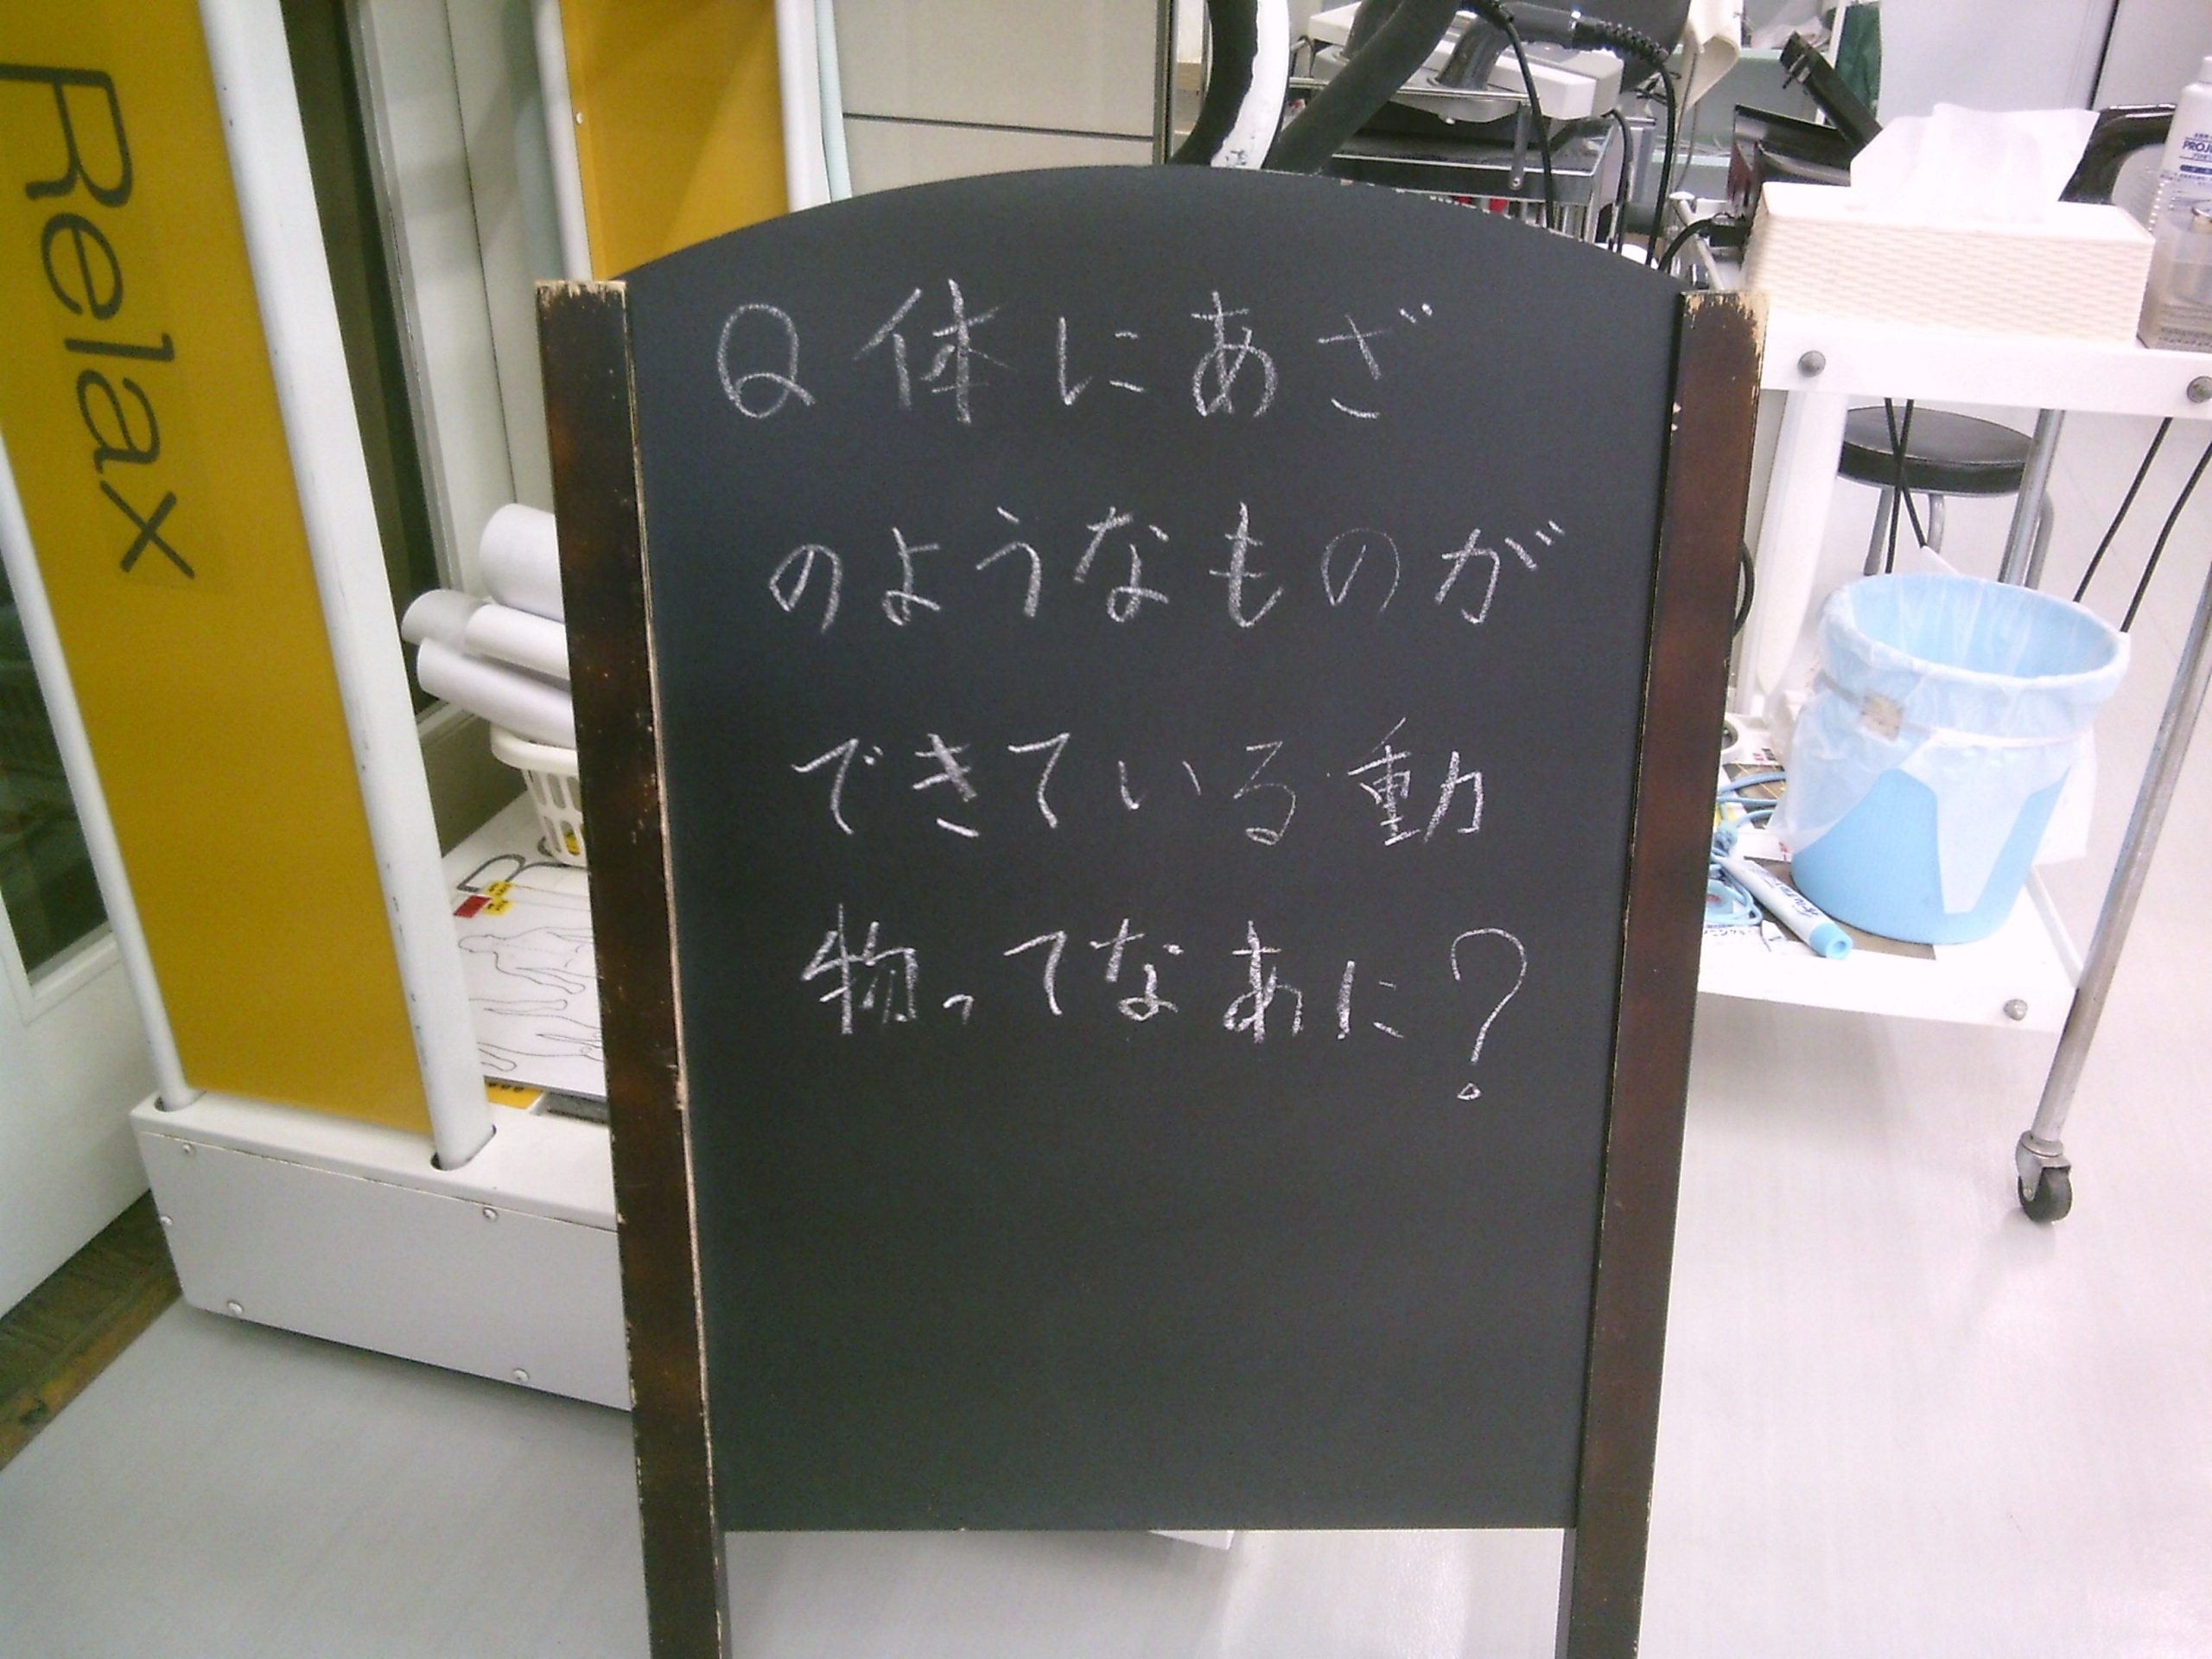 Relax
Q 体にあざ
のようなものが
できている動
物ってなあに?